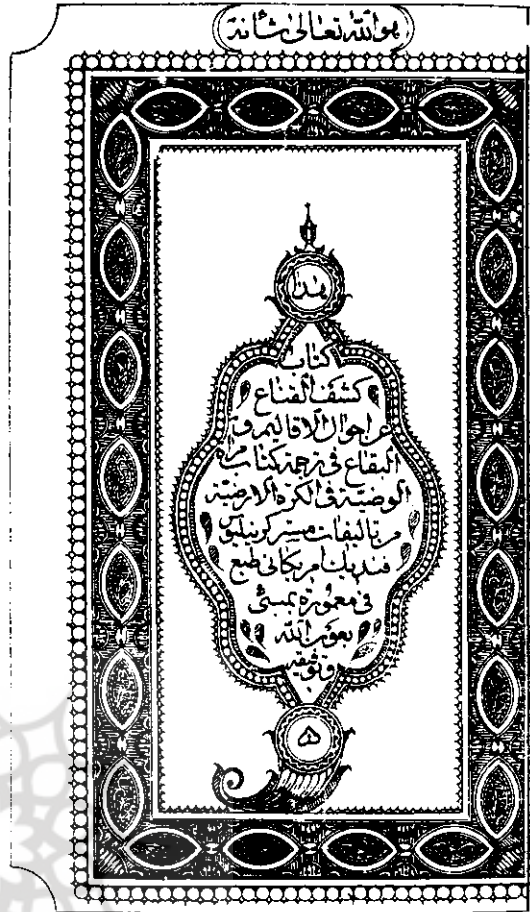 هو الله تعالی شأنه
هذا
کتاب
کشف القناع
عن احوال الاقالیم و
البقاع فی ترجمة کتاب مرآة
الوضیّة فی الکرة الارضیّة
من تالیفات مستر کرنیلیوس
فندیک امریکانی طبع
فی معمورة بمبئی
بعون الله
و توفیقه
ه